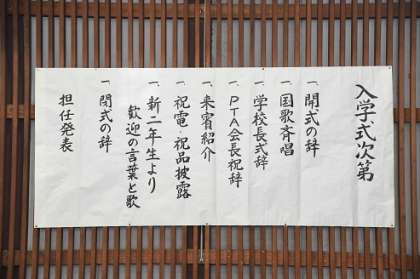 入学式次第
一、開式の辞
一、国歌斉唱
一、学校長式辞
一、PTA会長祝辞
一、来賓紹介
一、祝電・祝品披露
一、新二年生より
歓迎の言葉と歌
一、閉式の辞
担任発表